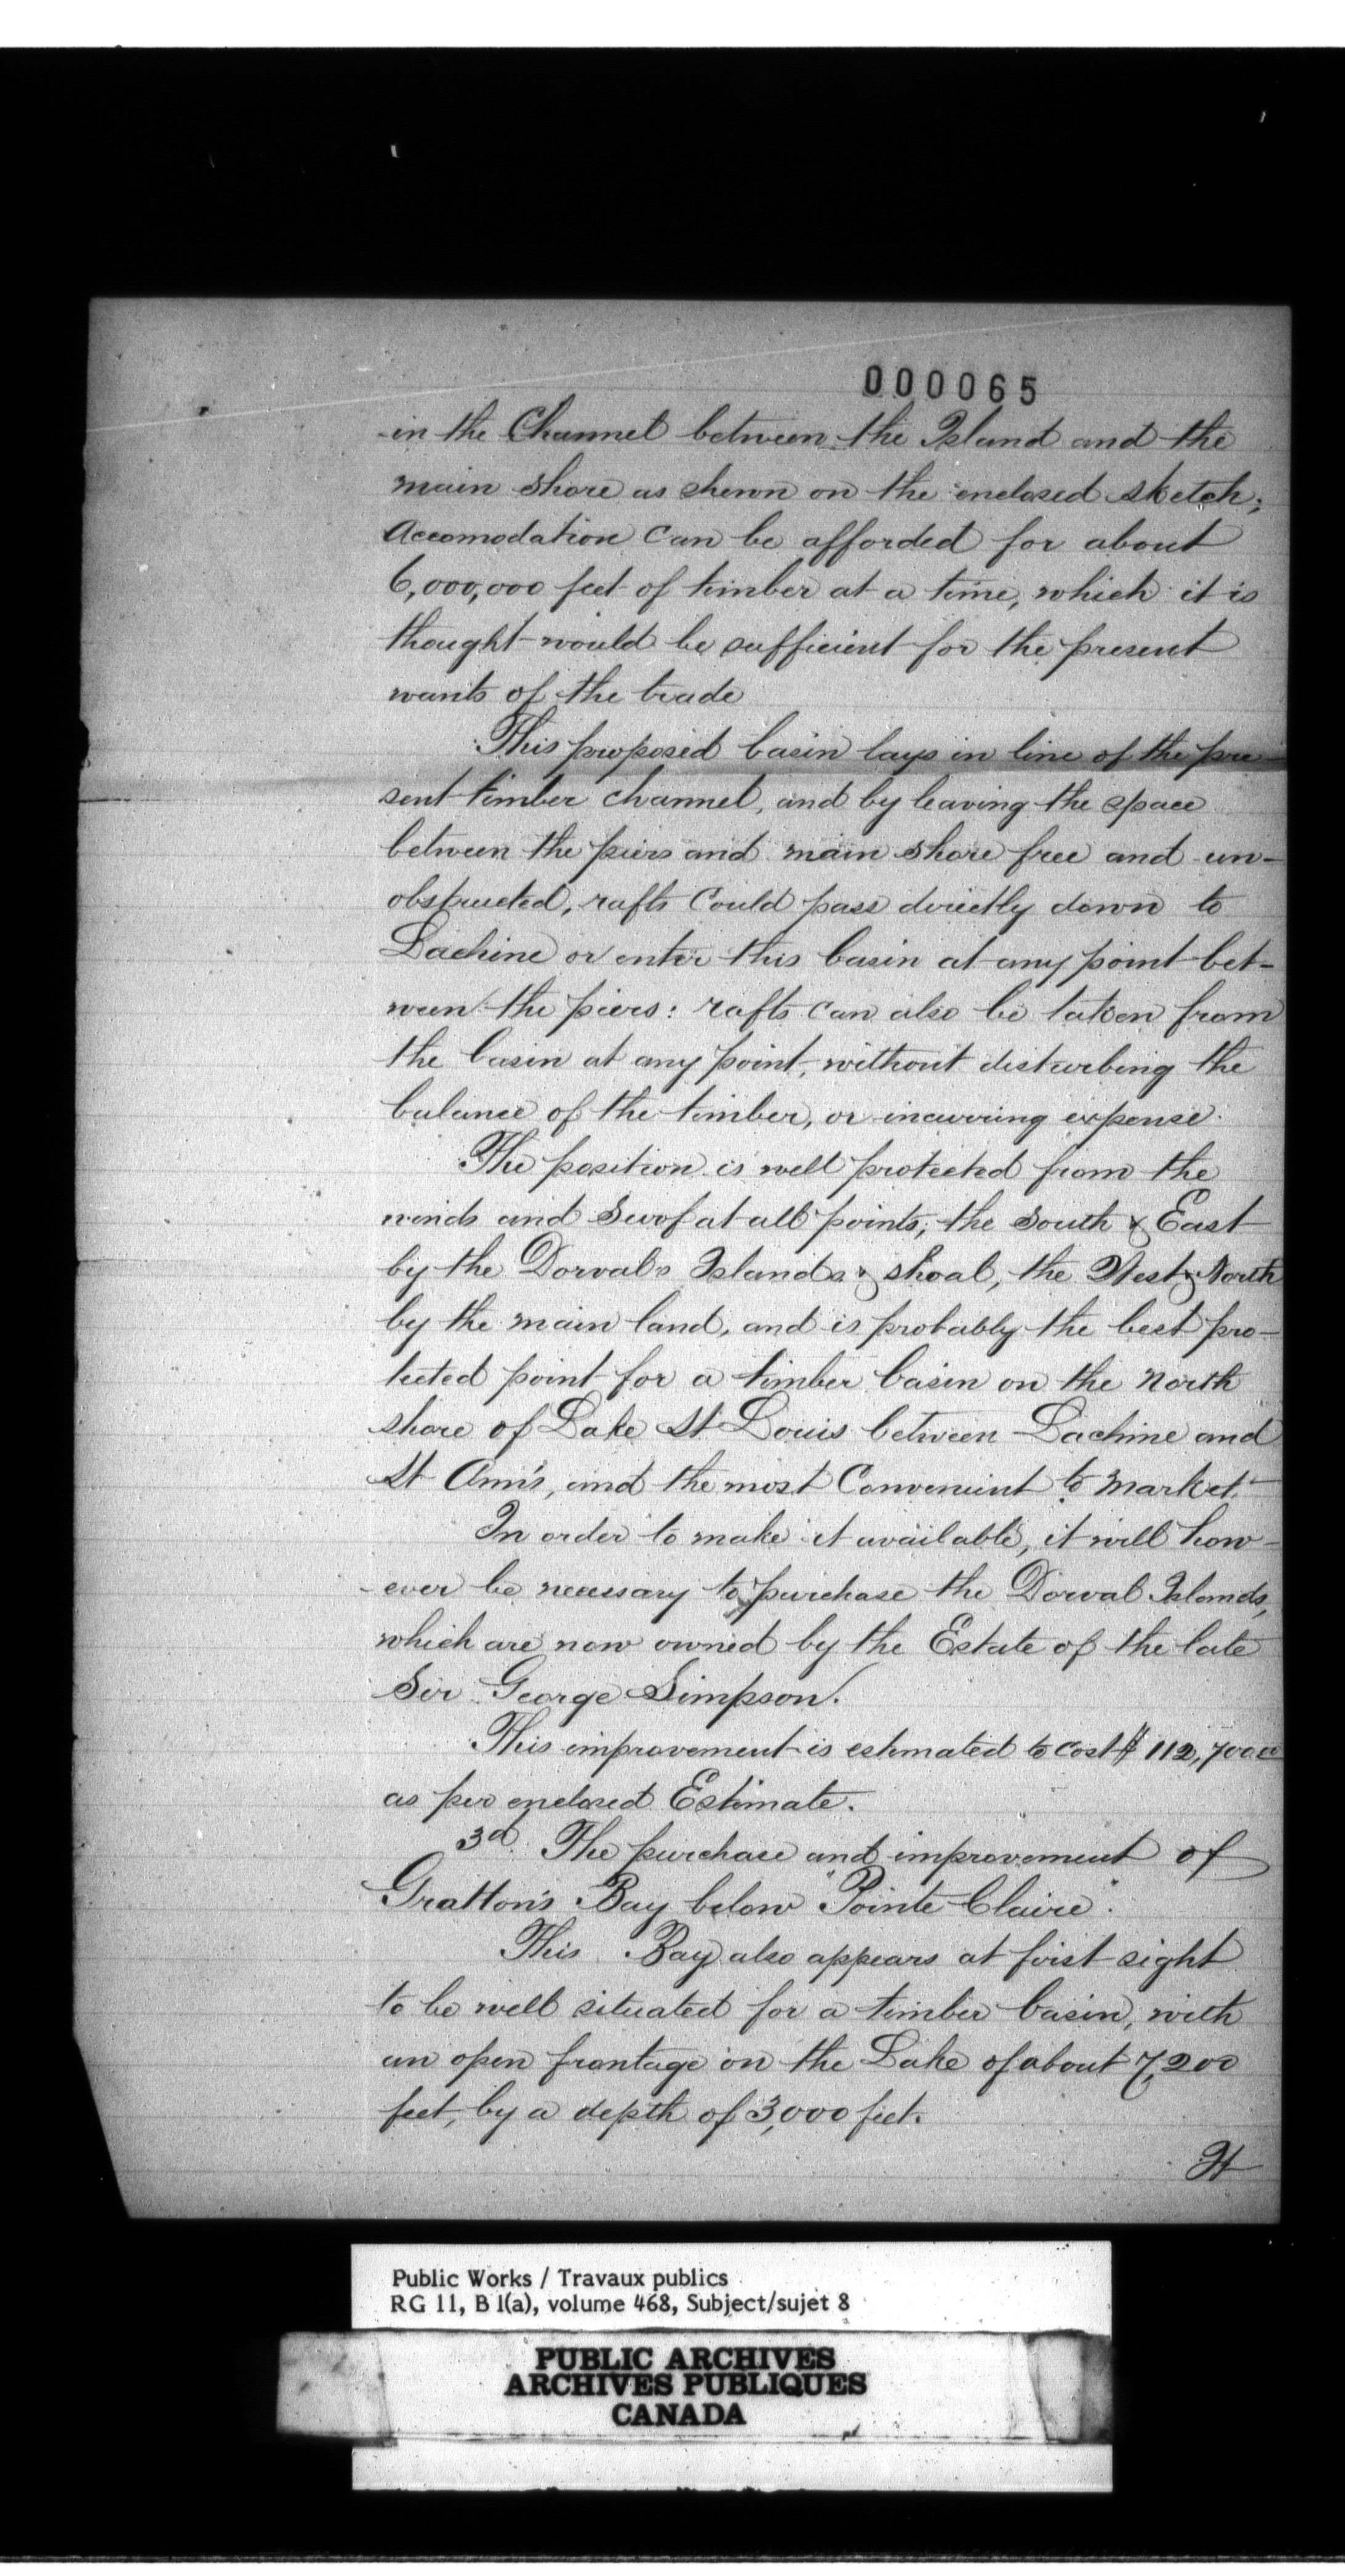 000065
in the Channel between the Island and the
main shore as shewn on the enclosed sketch;
Accomodation can be afforded for about
6,000,000 feet of timber at a time, which it is
thought would be sufficient for the present
wants of the trade
This proposed basin lays in line of the pre-
sent timber channel, and by leaving the space
between the piers and main shore free and un-
obstructed, rafts could pass directly down to
Lachine or enter this basin at any point bet-
ween the piers: rafts can also be taken from
the basin at any point, without disturbing the
balance of the timber, or incurring expense.
The position is well protected from the
winds and Surf at all points; the South & East
by the Dorval Islands & shoal, the West & North
by the main land, and is probably the best pro-
tected point for a timber basin on the North
shore of Lake St Louis between Lachine and
St Ann's, and the most Convenient to market.
In order to make it available, it will how-
ever be necessary to purchase the Dorval Islands,
which are now owned by the Estate of the late
Sir George Simpson.
This improvement is estimated to cost $112,700.00
as per enclosed Estimate.
3d. The purchase and improvement of
Gratton's Bay below "Pointe Claire".
This Bay also appears at first sight
to be well situated for a timber basin, with
an open frontage on the Lake of about 7,200
feet, by a depth of 3,000 feet.
It
Public Works / Travaux publics
RG 11, B 1(a), volume 468, Subject/sujet 8
PUBLIC ARCHIVES
ARCHIVES PUBLIQUES
CANADA